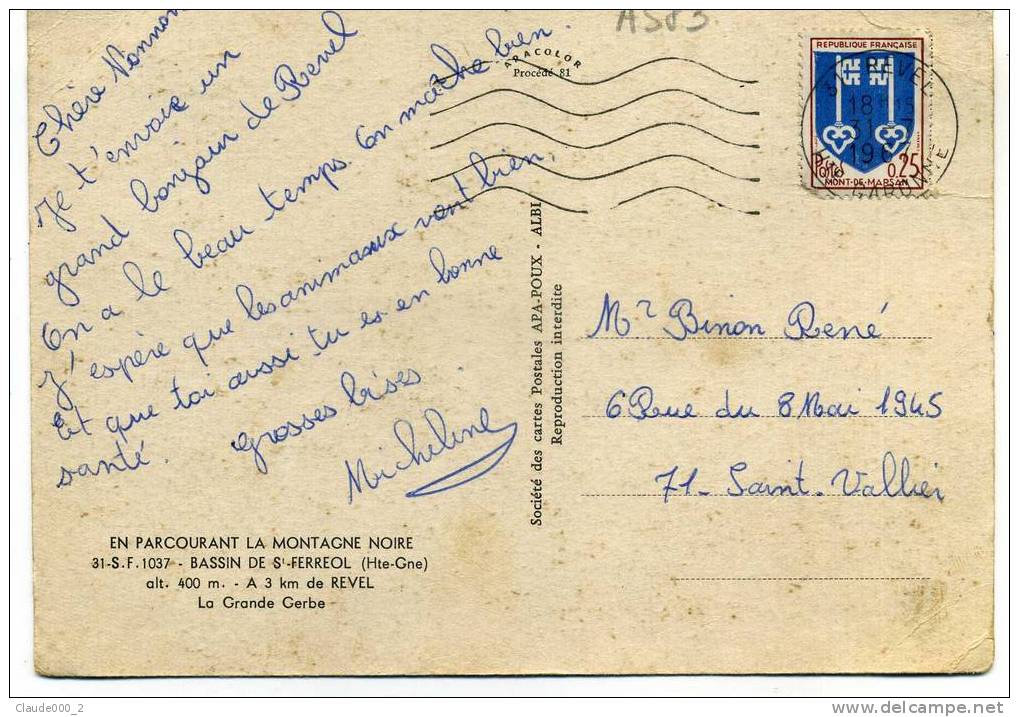 Chère Nonnon
Je t'envoie un
grand bonjour de Revel
On a le beau temps. On mathe bien.
J'espère que les animaux vont bien,
Et que toi aussi tu es en bonne
santé. grosses bises.
Micheline
EN PARCOURANT LA MONTAGNE NOIRE
31-S.F. 1037 - BASSIN DE St-FERREOL (Hte-Gne)
alt. 400 m. - A 3 km de REVEL
La Grande Gerbe
APACOLOR
Procédé 81
Société des cartes Postales APA-POUX - ALBI
Reproduction interdite
A583
REPUBLIQUE FRANÇAISE
0,25
MONT-DE-MARSAN
REVEL
18
31
196
GARONNE
Mr Binon René
6 Rue du 8 Mai 1945
71- Saint-Vallier
Claude000_2
delcampe.net